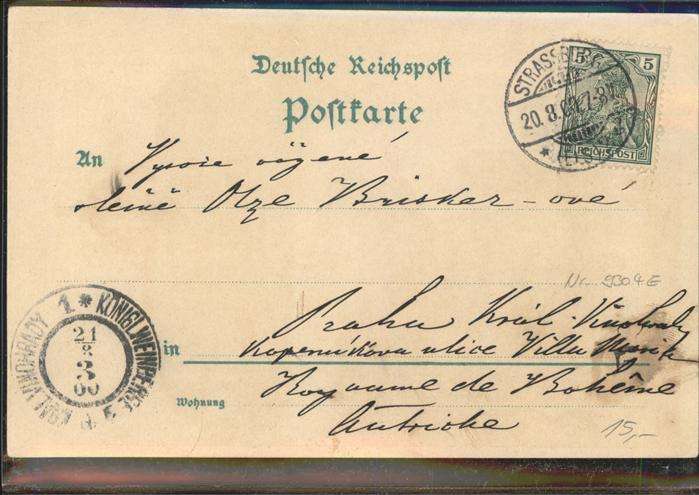 Deutsche Reichspost
Postkarte
5 5
REICHSPOST
STRASSBURG
20.8.00. 7-8N.
* (ELS.)
An Vysoce vážené
slečně Olze Brisker-ové
Nr. 9304 E
1 * KÖNIGL. WEINBERGE
KRÁL. VINOHRADY
21
8
3
00
Praha Král. Vinohrady
in Koperníkova ulice Villa
Royaume de Bohême
Wohnung
Autriche
15,-